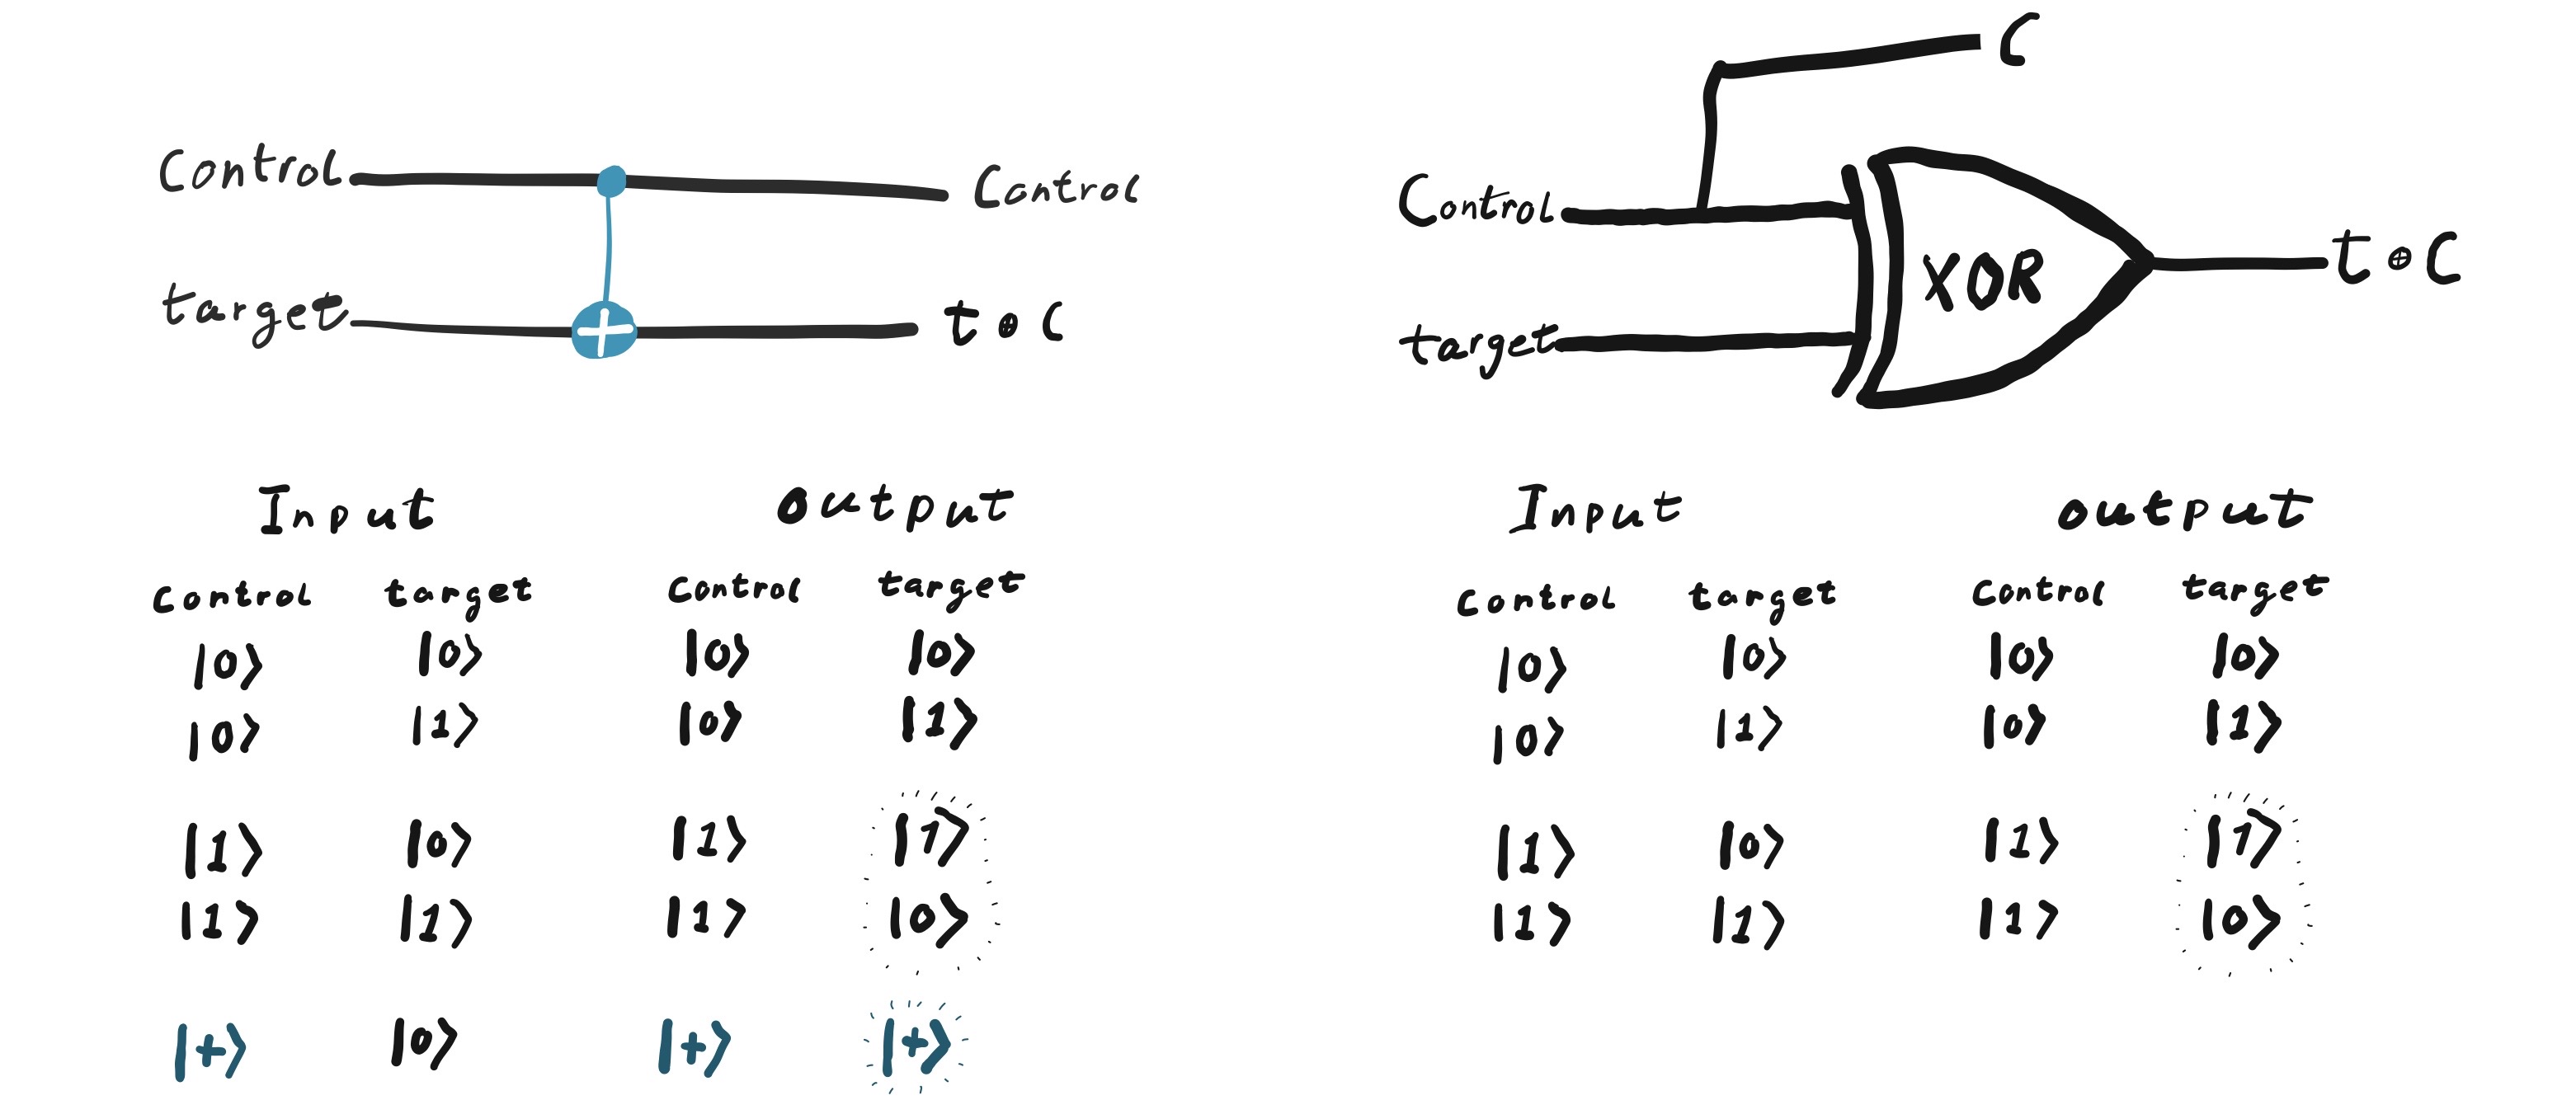 Control Control
target t ⊕ C
Input output
control target Control target
|0⟩ |0⟩ |0⟩ |0⟩
|0⟩ |1⟩ |0⟩ |1⟩
|1⟩ |0⟩ |1⟩ |1⟩
|1⟩ |1⟩ |1⟩ |0⟩
|+⟩ |0⟩ |+⟩ |+⟩
C
Control
XOR t ⊕ C
target
Input output
control target Control target
|0⟩ |0⟩ |0⟩ |0⟩
|0⟩ |1⟩ |0⟩ |1⟩
|1⟩ |0⟩ |1⟩ |1⟩
|1⟩ |1⟩ |1⟩ |0⟩